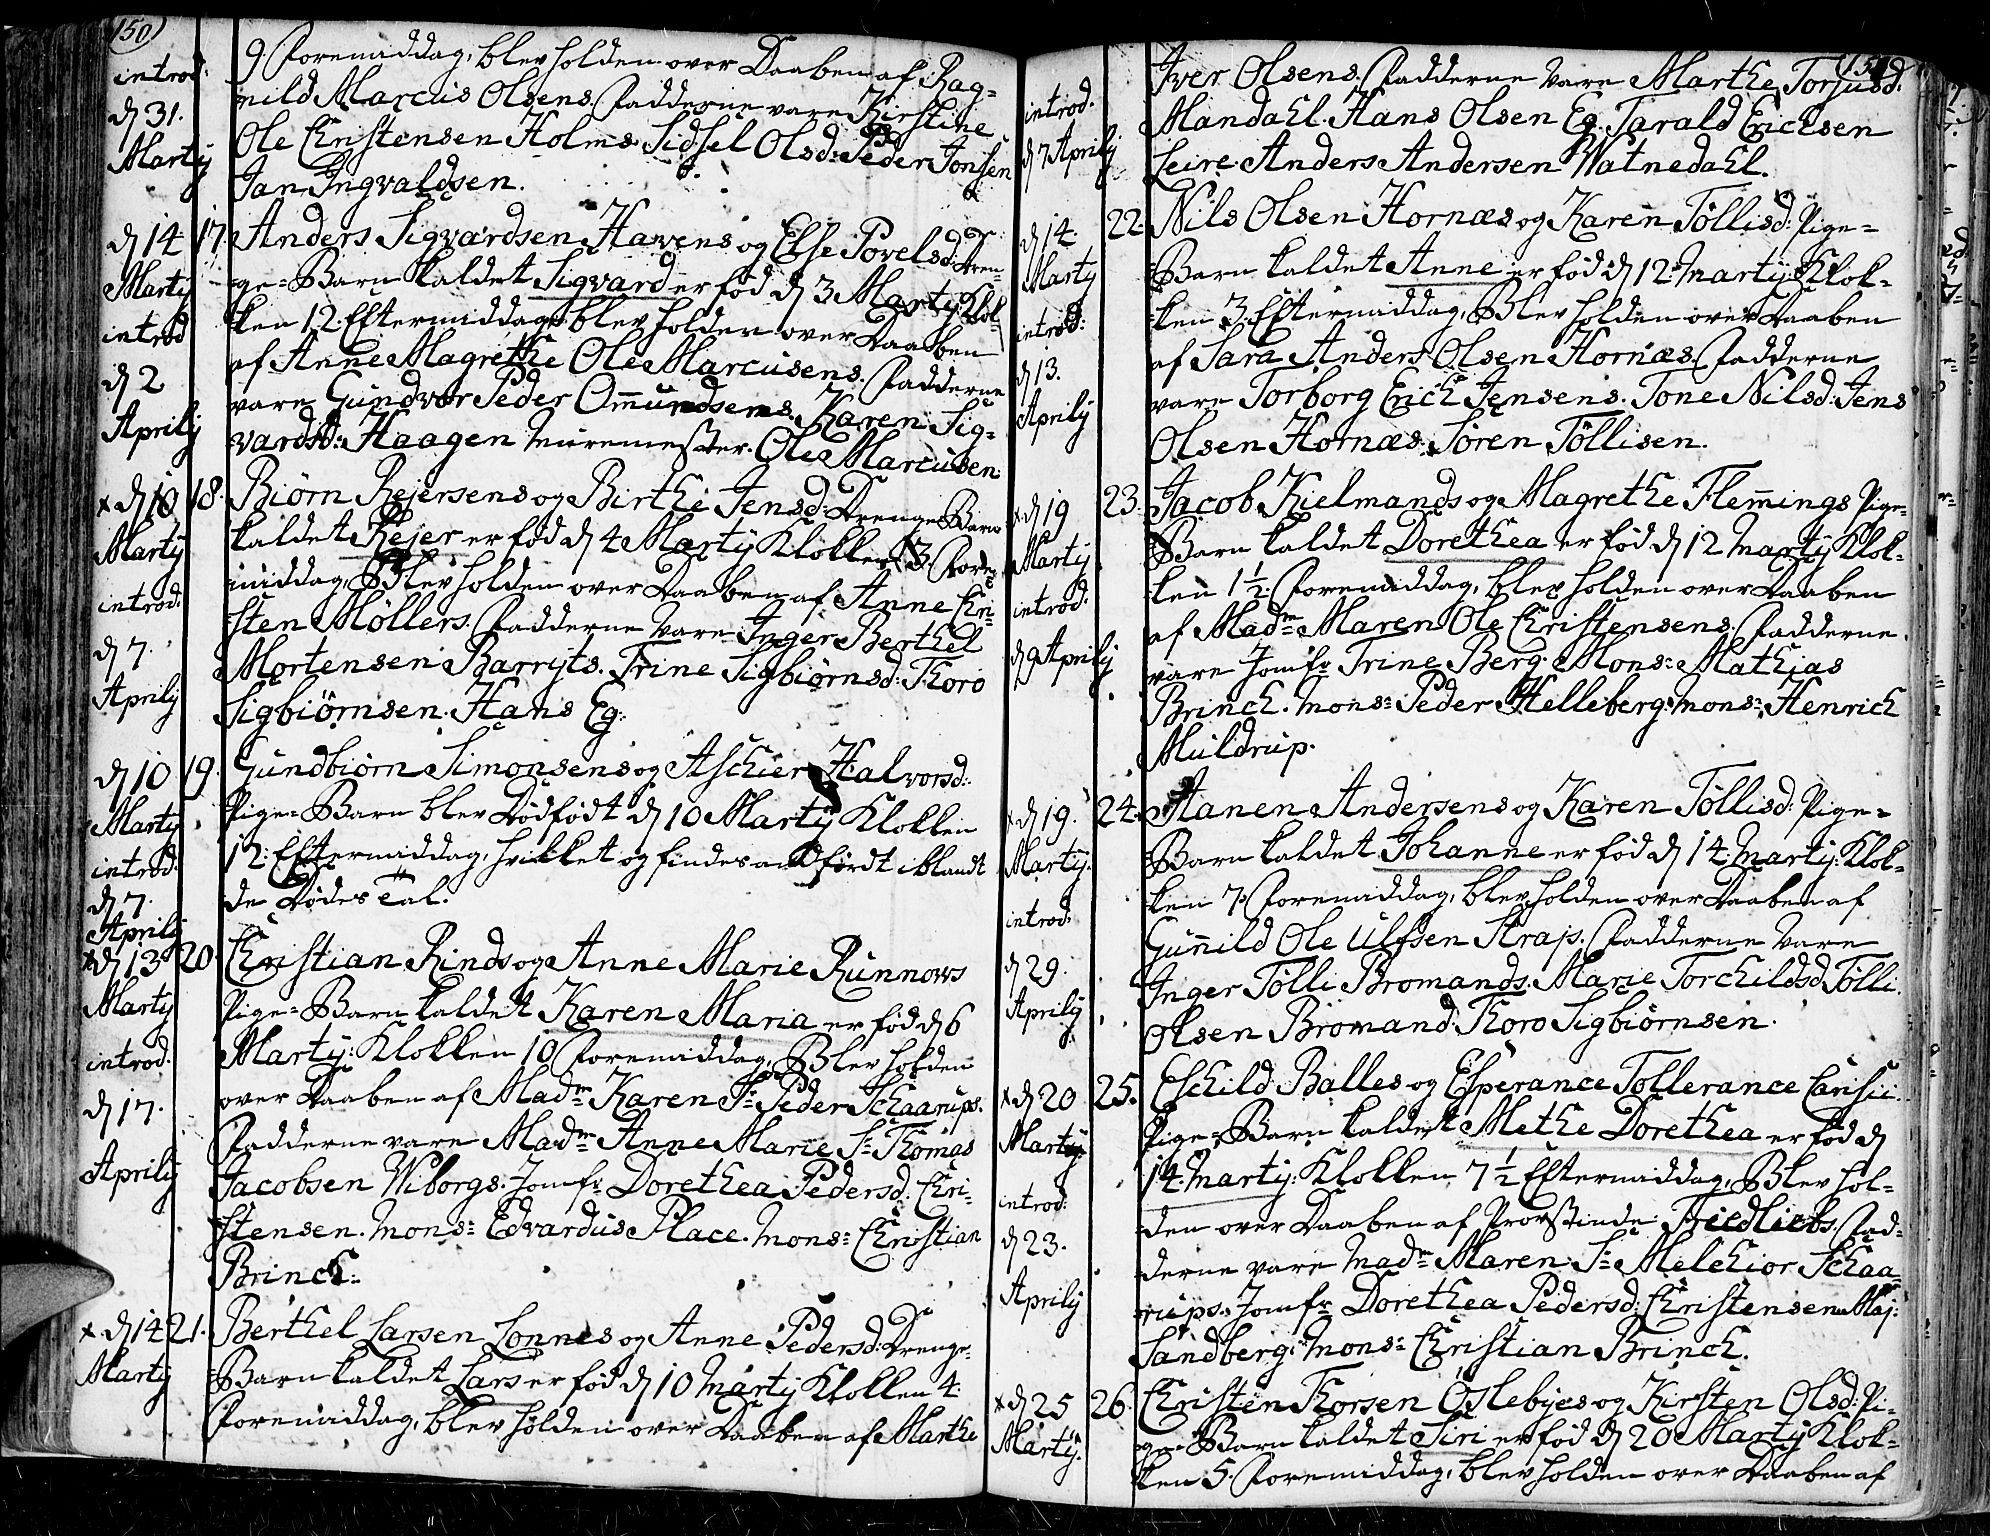 150)
introd:
d 31.
Martij
9 Foremiddag, blev holden over Daaben af Rag-
nild Marcus Olsens. Fadderne vare Kirstine
Ole Christensen Holms. Sidsel Olsd: Peder Jonsen
Jan Ingvaldsen.
d 14
Martij
introd
d 2
Aprilij
17.
Anders Sigvardsen Havens og Else Povelsd: Dren-
ge-Barn kaldet Sigvard er fød d 3 Martij Klok-
ken 12 Eftermiddag, blev holden over Daaben
af Anne Magrethe Ole Marcusens. Fadderne
vare Gundvor Peder Omundsens. Karen Sig-
vardsd: Haagen Muremester. Ole Marcusen
x d 10
Martij
introd:
d 7.
Aprilij
18.
Biørn Rejersens og Birthe Jensd: Drenge Barn
kaldet Rejer er fød d 4 Martij Klokken 3. Fore-
middag, Blev holden over Daaben af Anne Chri-
sten Møllers. Fadderne vare Inger Berthel
Mortensen Barryts. Trine Sigbiørnsd: Thoro
Sigbiørnsen. Hans Eg:
d 10
Martij
introd:
d 7.
Aprilij
19.
Gundbiørn Simonsens og Aschier Halvorsd:
Pige-Barn blev Dødfødt d 10 Martij Klokken
12. Eftermiddag, hvilket og findes andført iblandt
de Dødes Tal.
x d 13
Martij
introd.
d 17.
Aprilij
20.
Christian Rinds og Anne Marie Runnows
Pige-Barn kaldet Karen Maria er fød d 6
Martij: Klokken 10 Foremiddag, Blev holden
over Daaben af Madm Karen S: Peder Schaarups.
Fadderne vare Madm Anne Marie S: Thomas
Jacobsen Wiborgs. Jomfr Dorethea Pedersd: Chri-
stensen. Mons: Edvardus Place. Mons: Christian
Brinch:
x d 14
Martij
21.
Berthel Larsen Lonnes og Anne Pedersd: Drenge-
Barn kaldet Lars er fød d 10 Martij Klokken 4
Foremiddag, blev holden over Daaben af Marthe
151
introd.
d 7 Aprilij
Iver Olsens. Fadderne vare Marthe Torjusd:
Mandahl. Hans Olsen Eg. Tarald Erichsen
Leire. Anders Andersen Watnedahl.
d 14.
Martij
introd:
d 13.
Aprilij
22.
Nils Olsen Hornæs og Karen Tøllisd: Pige-
Barn kaldet Anne er fød d 12 Martij: Klok-
ken 3. Eftermiddag, Blev holden over Daaben
af Sara Anders Olsen Hornæs. Fadderne
vare Torborg Erich Jensens. Tone Nilsd: Jens
Olsen Hornæs. Søren Tøllisen.
x d 19
Martij
introd:
d 9 Aprilij
23.
Jacob Kielmands og Magrethe Flemmings Pige-
Barn kaldet Dorethea er fød d 12 Martij Klok-
ken 1½. Foremiddag, blev holden over Daaben
af Madm Maren Ole Christensens. Fadderne
vare Jomfr Trine Berg. Mons: Mathias
Brinch. Mons: Peder Helleberg. Mons: Henrich
Muldrup.
x d 19.
Martij.
introd:
d 29.
Aprilij
24.
Hanen Andersens og Karen Tøllisd: Pige-
Barn kaldet Johanne er fød d 14. Martij: Klok-
ken 7. Foremiddag, blev holden over Daaben af
Gunnild Ole Ulfsen Strap. Fadderne vare
Inger Tølli Bromands. Marie Torchildsd. Tølli
Olsen Bromand. Thoro Sigbiørnsen.
x d 20
Martij
introd:
d 23.
Aprilij
25.
Eschild Balles og Esperance Tollerance Carisii.
Pige-Barn kaldet Methe Dorethea er fød d
14. Martij: Klokken 7½ Eftermiddag, Blev hol-
den over Daaben af Provstinde Friedliebs. Fad-
derne vare Madm Maren S: Melchior Schaa-
rups. Jomfr Dorethea Pedersd: Christensen. Maj:
Sandberg. Mons: Christian Brinch.
x d 25
Martij.
26.
Christen Thorsen Oslebyes og Kirsten Olsd: Pi-
ge-Barn kaldet Siri er fød d 20 Martij Klok-
ken 5. Foremiddag, blev holden over Daaben af